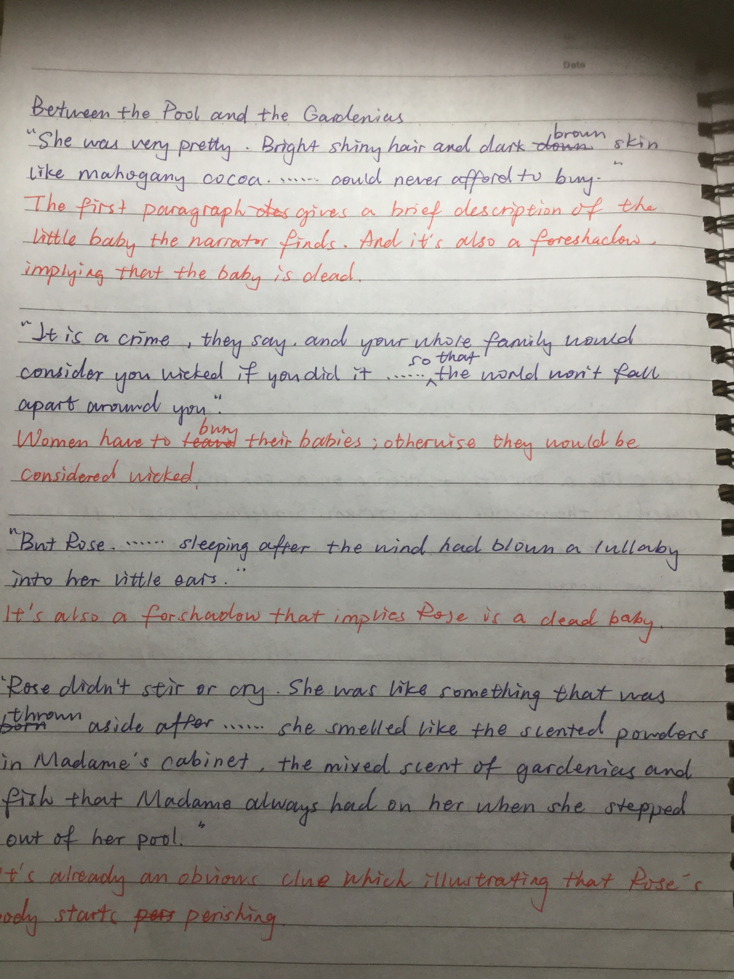 Date
Between the Pool and the Gardenias
"She was very pretty. Bright shiny hair and dark brown skin
like mahogany cocoa. ...... could never afford to buy."
The first paragraph des gives a brief description of the
little baby the narrator finds. And it's also a foreshadow,
implying that the baby is dead.
"It is a crime, they say. and your whole family would
consider you wicked if you did it ...... so that the world won't fall
apart around you".
Women have to bury their babies; otherwise they would be
considered wicked.
"But Rose. ...... sleeping after the wind had blown a lullaby
into her little ears."
It's also a forshadow that implies Rose is a dead baby.
"Rose didn't stir or cry. She was like something that was
thrown aside after ...... she smelled like the scented powders
in Madame's cabinet, the mixed scent of gardenias and
fish that Madame always had on her when she stepped
out of her pool."
It's already an obvious clue which illustrating that Rose's
ody starts pers perishing.